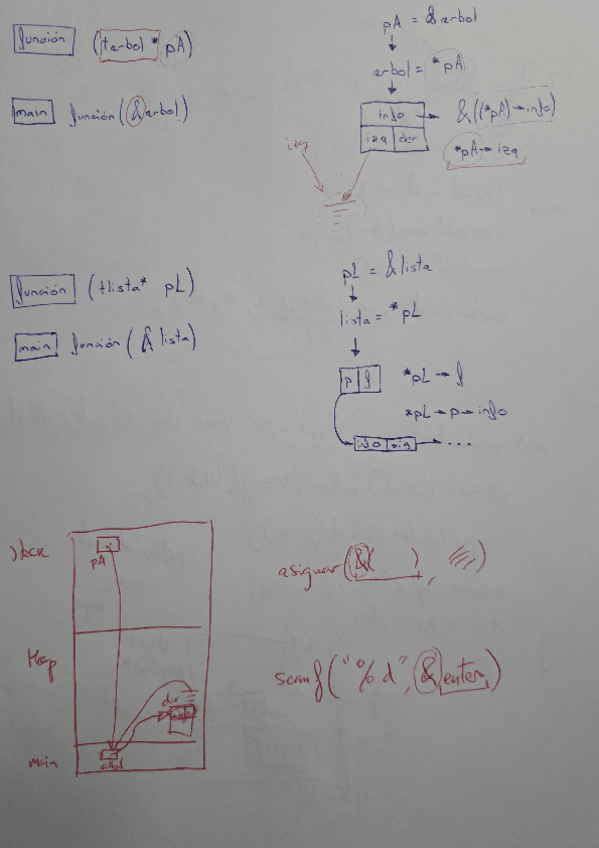 función (tarbol* pA)
main función(&arbol)
pA = &arbol
arbol = *pA
info &((*pA)→info)
izq der *pA→izq
izq
función (tlista* pL)
main función(&lista)
pL = &lista
lista = *pL
p f *pL→f
*pL→p→info
info sig ...
pA
Heap
der
main
asignar(&( ),
scanf("%d", &entero)